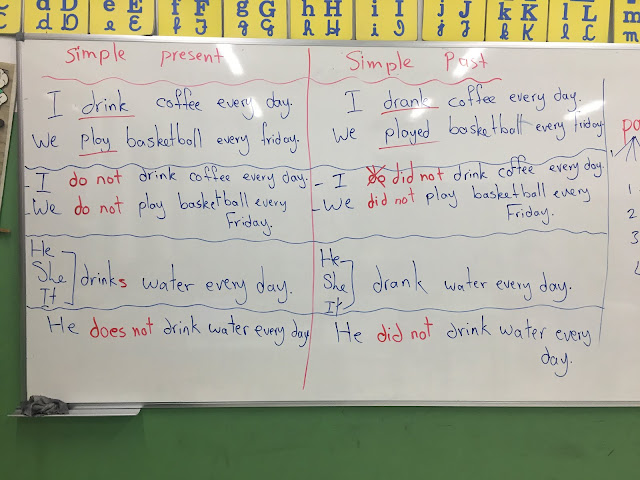 d D e E f F g G h H i I j J k K l L m
d D e E f F g G h H i I j J k K l L m
Simple present
I drink coffee every day.
We play basketball every friday.
- I do not drink coffee every day.
- We do not play basketball every
Friday.
He
She
It
drinks water every day.
He does not drink water every day
Simple Past
I drank coffee every day.
We played basketball every friday
- I did not drink coffee every day.
- We did not play basketball every
Friday.
He
She
It
drank water every day.
He did not drink water every
day.
1
2
3